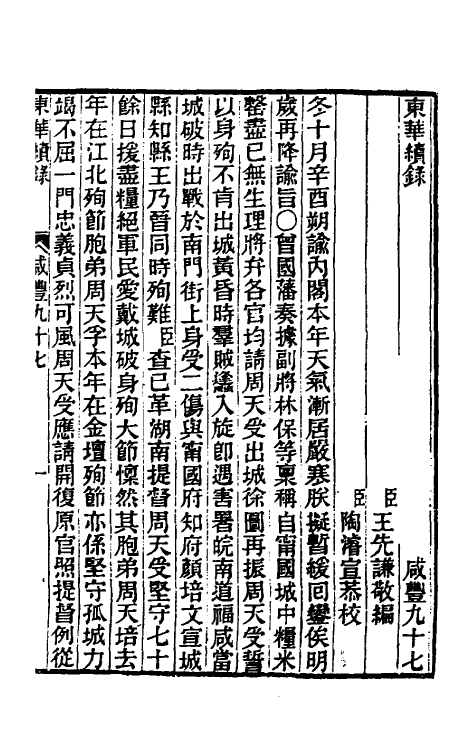 東華續錄
咸豐九十七
臣王先謙敬編
臣陶濬宣恭校
冬十月辛酉朔諭內閣本年天氣漸居嚴寒朕擬暫緩回鑾俟明
歲再降諭旨〇曾國藩奏據副將林保等稟稱自甯國城中糧米
罄盡已無生理將弁各官均請周天受出城徐圖再振周天受誓
以身殉不肯出城黃昏時羣賊蠭入旋卽遇害署皖南道福咸當
城破時出戰於南門街上身受二傷與甯國府知府顏培文宣城
縣知縣王乃晉同時殉難臣查已革湖南提督周天受堅守七十
餘日援盡糧絕軍民愛戴城破身殉大節懍然其胞弟周天培去
年在江北殉節胞弟周天孚本年在金壇殉節亦係堅守孤城力
竭不屈一門忠義貞烈可風周天受應請開復原官照提督例從
東華續錄
咸豐九十七
一